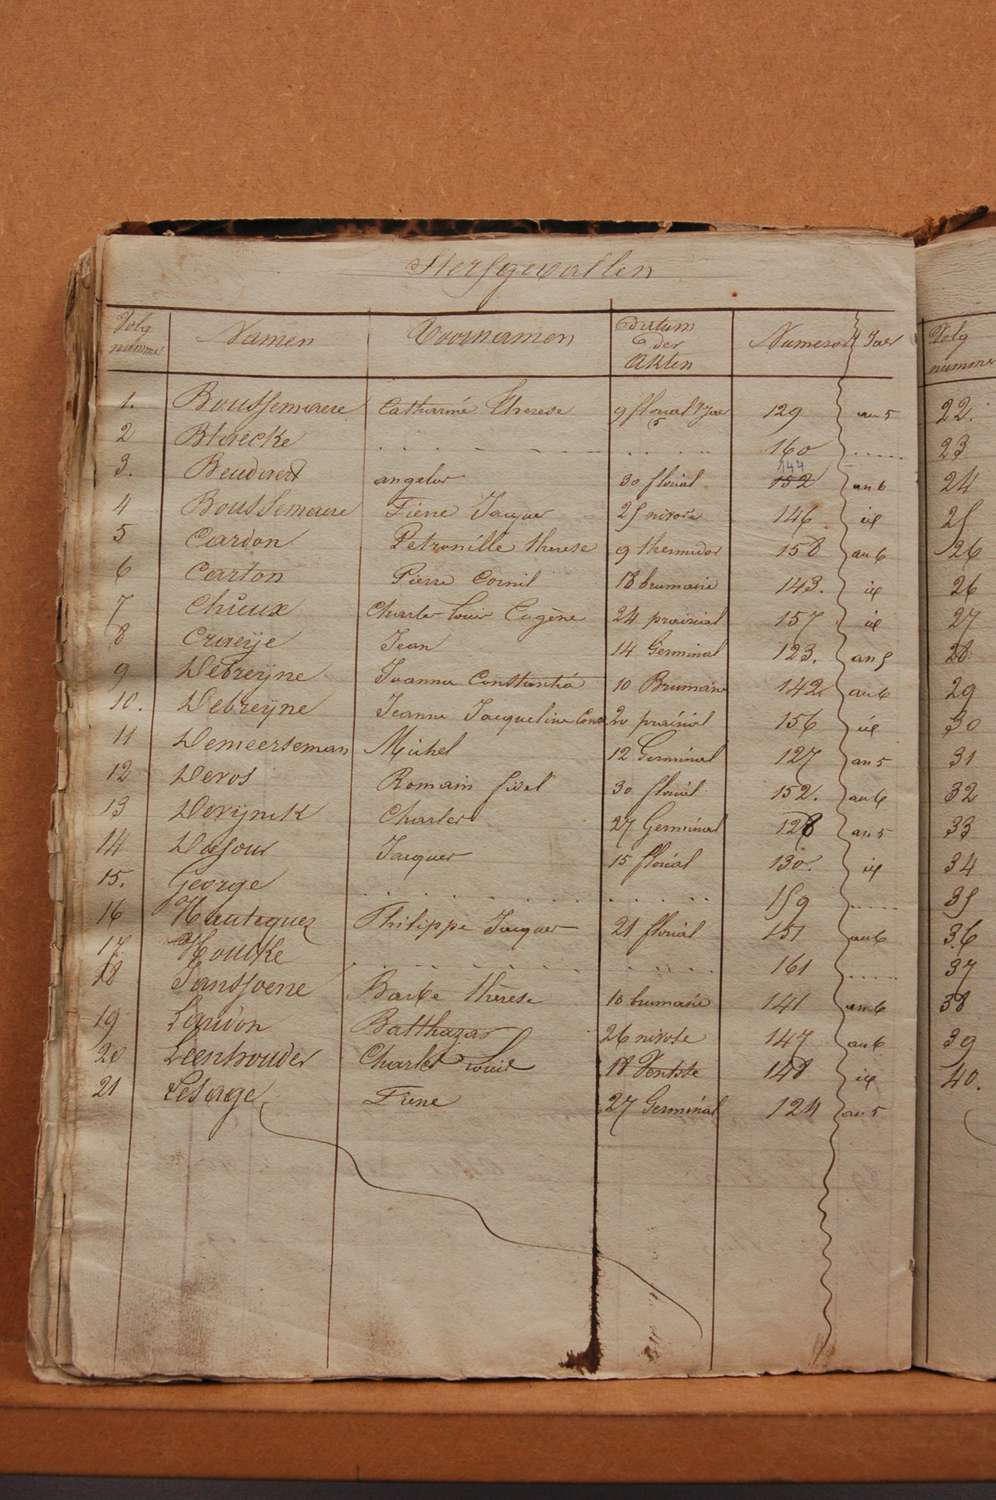 Sterfgevallen
Volg nummer Namen Voornamen Datum der Akten Numeros Jaer
1. Boussemaere Catharine Therese 9 floreal 5 Jaer 129 an 5
2 Bloecke . . . . . . . . 160 . . . . .
3. Beuderert angelus 30 floréal 144 152 an 6
4 Boussemaere Pierre Jacques 25 nivose 146 id
5 Cardon Petronille therese 9 thermidor 158 an 6
6 Carton Pierre Cornil 18 brumaire 143. id
7 Chieux Charles Louis Eugène 24 prairial 157 id
8 Craeÿe Jean 14 Germinal 123. an 5
9 Debreÿne Joanna Constantia 10 Brumaire 142 an 6
10. Debreÿne Jeanne Jacqueline 20 prairial 156 id
11 Demeerseman Michel 12 Germinal 127 an 5
12 Devos Romain fidel 30 floréal 152. an 6
13 Devÿnck Charles 27 Germinal 128 an 5
14 Dufour Jacques 15 floréal 130. id
15. George . . . . . . . . 159 . . . . .
16 Hautequez Philippe Jacques 21 floréal 151 an 6
17. Houcke . . . . . . . . 161 . . . . .
18 Janssoene Barbe thérèse 10 brumaire 141 an 6
19 Landon Balthazar 26 nivose 147 an 6
20 Leenhouder Charles Louis 18 Ventose 148 id
21 Lesage Pierre 27 Germinal 124 an 5
Volg nummer
22.
23
24
25
26
26
27
28
29
30
31
32
33
34
35
36
37
38
39
40.